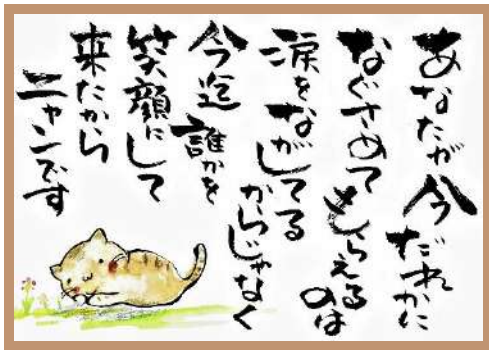 あなたが今だれかに
なぐさめてもらえるのは
涙をながしてる
からじゃなく
今迄誰かを
笑顔にして
来たから
ニャンです